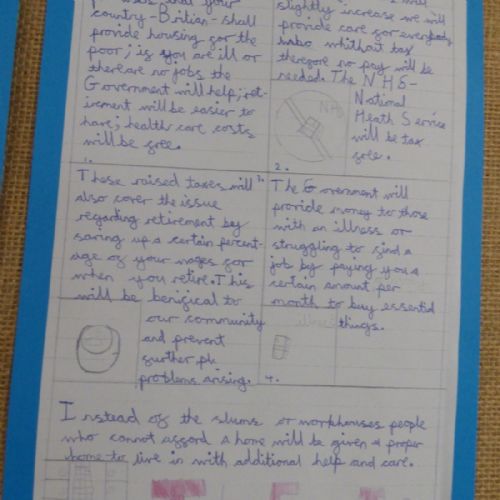 that your
country-Britian-shall
provide housing gor the
poor; is you are ill or
there are no jobs the
Government will help; ret-
irement will be easier to
have; health care costs
will be gree.
1.
slightly increase we will
provide care gor everybody
whithat tax
theregore no pay will be
needed. The NHS-
National
Heath Service
will be tax
gree.
NHS
2.
These raised taxes will
also cover the issue
regarding retirement by
saring up a certain percent-
age og your wages gor
when you retire. This
will be benigical to
our community
and prevent
gurther
problems arising.
3.
The Government will
provide money to those
with an illness or
struggling to gind a
job by paying you a
certain amount per
month to buy essential
things.
4.
Instead og the slums or workhouses people
who cannot aggord a home will be given a proper
home to live in with additional help and care.